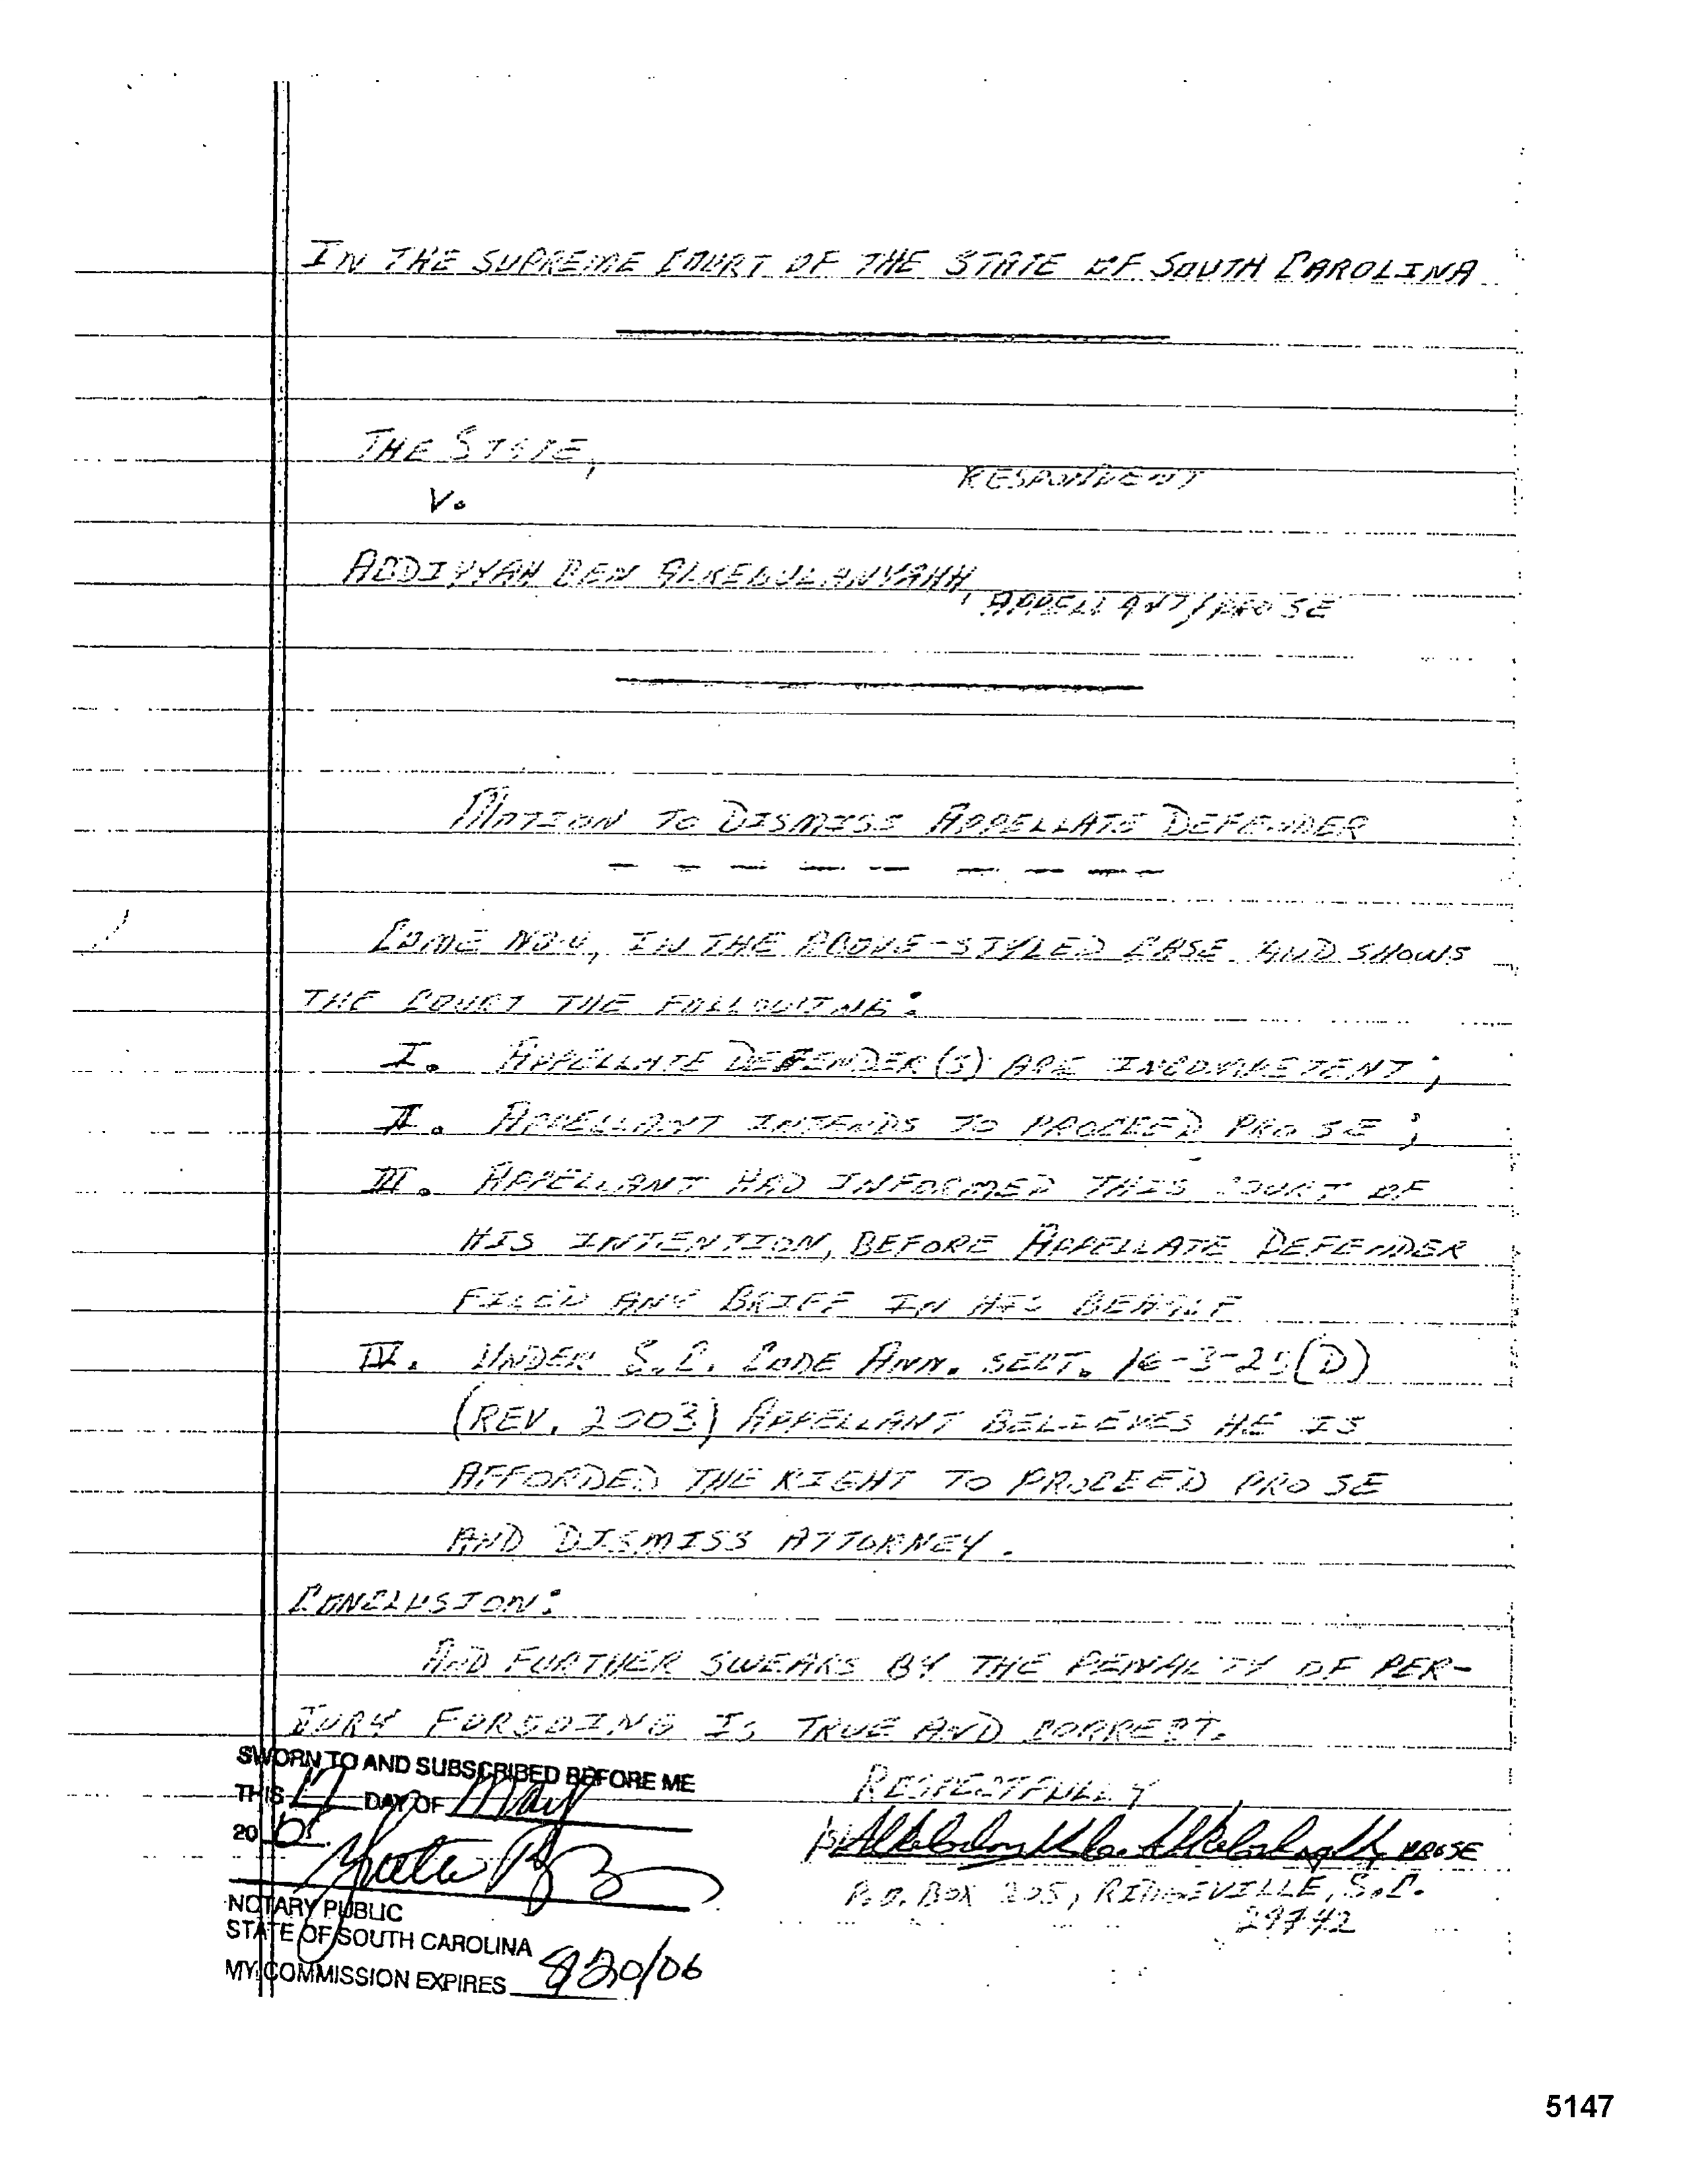 IN THE SUPREME COURT OF THE STATE OF SOUTH CAROLINA
THE STATE,
RESPONDENT
V.
ABDIYYAH BEN ALKEBULANYAHH,
APPELLANT/PRO SE
MOTION TO DISMISS APPELLATE DEFENDER
COME NOW, IN THE ABOVE-STYLED CASE AND SHOWS
THE COURT THE FOLLOWING:
I. APPELLATE DEFENDER(S) ARE INCOMPETENT;
II. APPELLANT INTENDS TO PROCEED PRO SE;
III. APPELLANT HAD INFORMED THIS COURT OF
HIS INTENTION, BEFORE APPELLATE DEFENDER
FILED ANY BRIEF IN HIS BEHALF
IV. UNDER S.C. CODE ANN. SECT. 16-3-25(D)
(REV. 2003) APPELLANT BELIEVES HE IS
AFFORDED THE RIGHT TO PROCEED PRO SE
AND DISMISS ATTORNEY.
CONCLUSION:
AND FURTHER SWEARS BY THE PENALTY OF PER-
JURY FORGOING IS TRUE AND CORRECT.
SWORN TO AND SUBSCRIBED BEFORE ME
THIS 17 DAY OF May
20 05
RESPECTFULLY
/s/ PRO SE
P.O. BOX 205, RIDGEVILLE, S.C.
29472
NOTARY PUBLIC
STATE OF SOUTH CAROLINA
MY COMMISSION EXPIRES 8/20/06
5147